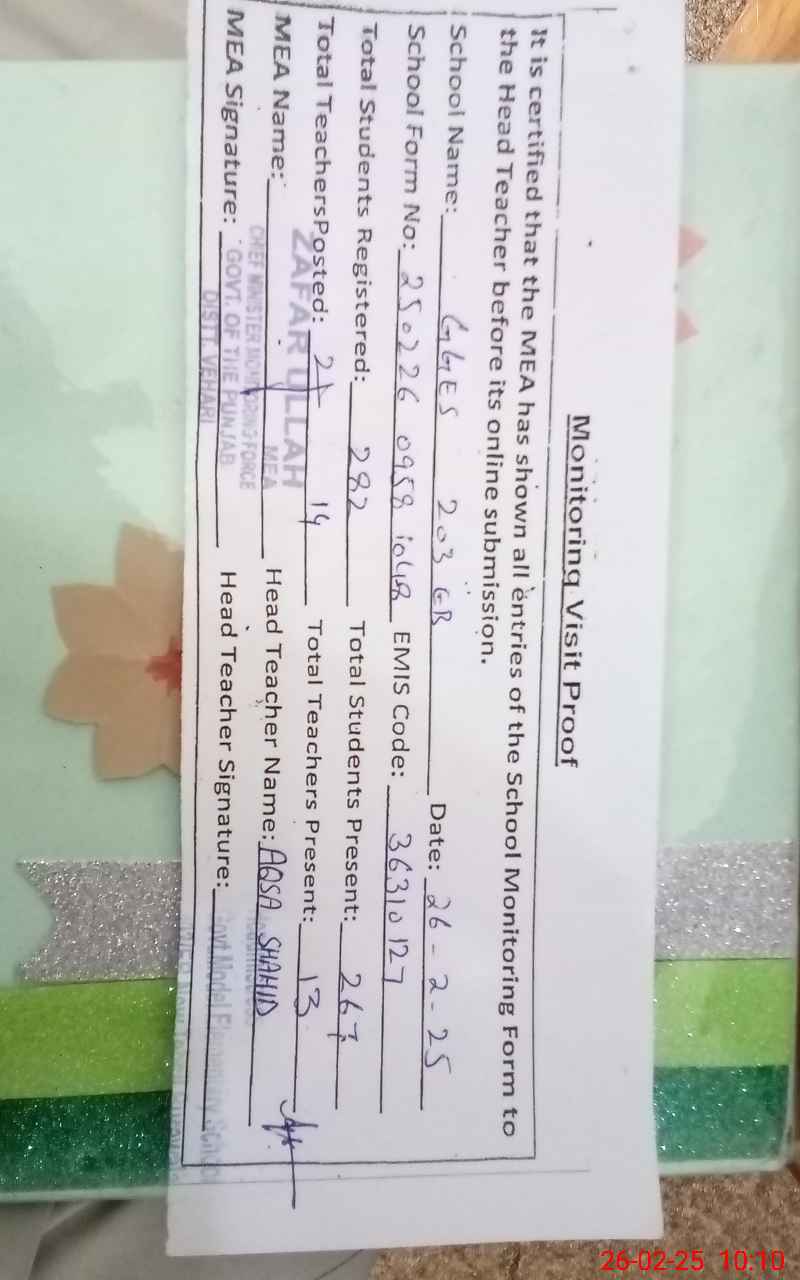 Monitoring Visit Proof
It is certified that the MEA has shown all entries of the School Monitoring Form to
the Head Teacher before its online submission.
School Name: GGES 203 EB Date: 26-2-25
School Form No: 250226 0958 1048 EMIS Code: 36310127
Total Students Registered: 282 Total Students Present: 267
Total TeachersPosted: 14 Total Teachers Present: 13
ZAFAR ULLAH
MEA
MEA Name: Head Teacher Name: AQSA SHAHID
CHIEF MINISTER MONITORING FORCE
GOVT. OF THE PUNJAB
MEA Signature: Head Teacher Signature:
DISTT. VEHARI
Headmistress
Govt. Model Elementary School
26-02-25 10:10